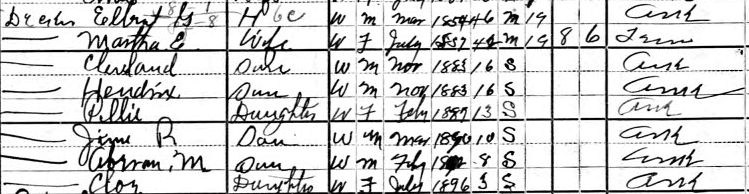 H W M Mar 1854 46 M 19 Ark
Martha E. Wife W F July 1857 42 M 19 8 6 Tenn
Cleveland Son W M Nov 1883 16 S Ark
Hendrix Son W M Nov 1883 16 S Ark
Daughter W F Feby 1887 13 S Ark
R Son W M Mar 1890 10 S Ark
M Son W M Feby 8 S Ark
Cloy Daughter W F July 1896 3 S Ark